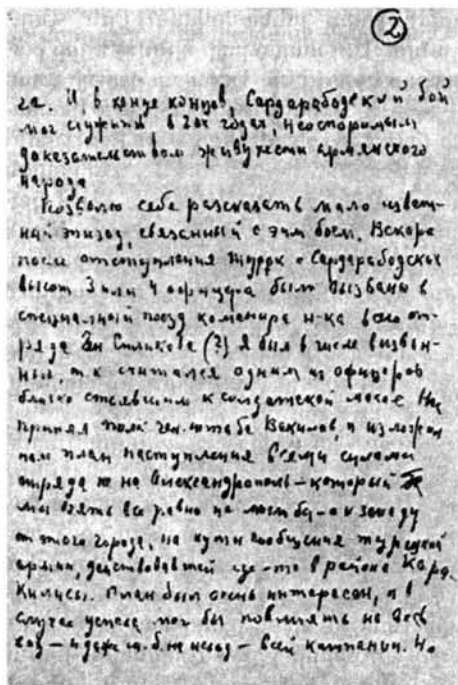 2
га. И, в конце концов, Сардарабадский бой
мог служить в 20х годах, неоспоримым
доказательством живучести армянского
народа
Позволю себе рассказать мало извест-
ный эпизод, связанный с этим боем. Вскоре
после отступления турок с Сардарабадских
высот 3 или 4 офицера были вызваны в
специальный поезд командира н-ка всего от-
ряда Ген Силикова (?) Я был в числе вызван-
ных, т к считался одним из офицеров
близко стоявшим к солдатской массе Нас
принял полк ген. штаба Векилов, и изложил
нам план наступления всеми силами
отряда не на Александрополь – который
мы взять все равно не могли бы – а к западу
от этого города, на пути сообщения турецкой
армии, действовавшей где-то в районе Кара-
Килисы. План был очень интересен, и в
случае успеха мог бы повлиять на весь
ход – и даже м.б. на исход – всей кампании. Но